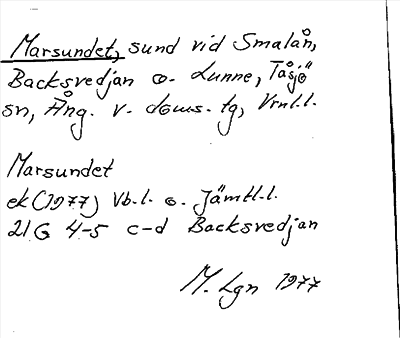 Marsundet, sund vid Smalån,
Backsvedjan o. Lunne, Tåsjö
sn, Ång. v. doms. tg, Vrnl.l.
Marsundet
ek (1977) Vb.l. o. Jämtl.l.
21G 4-5 c-d Backsvedjan
M. Lgn 1977